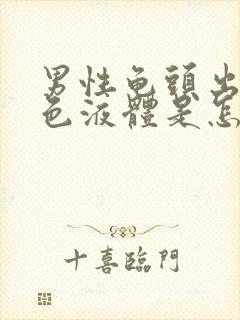 男性龟頭出
色液體是怎
十喜臨門